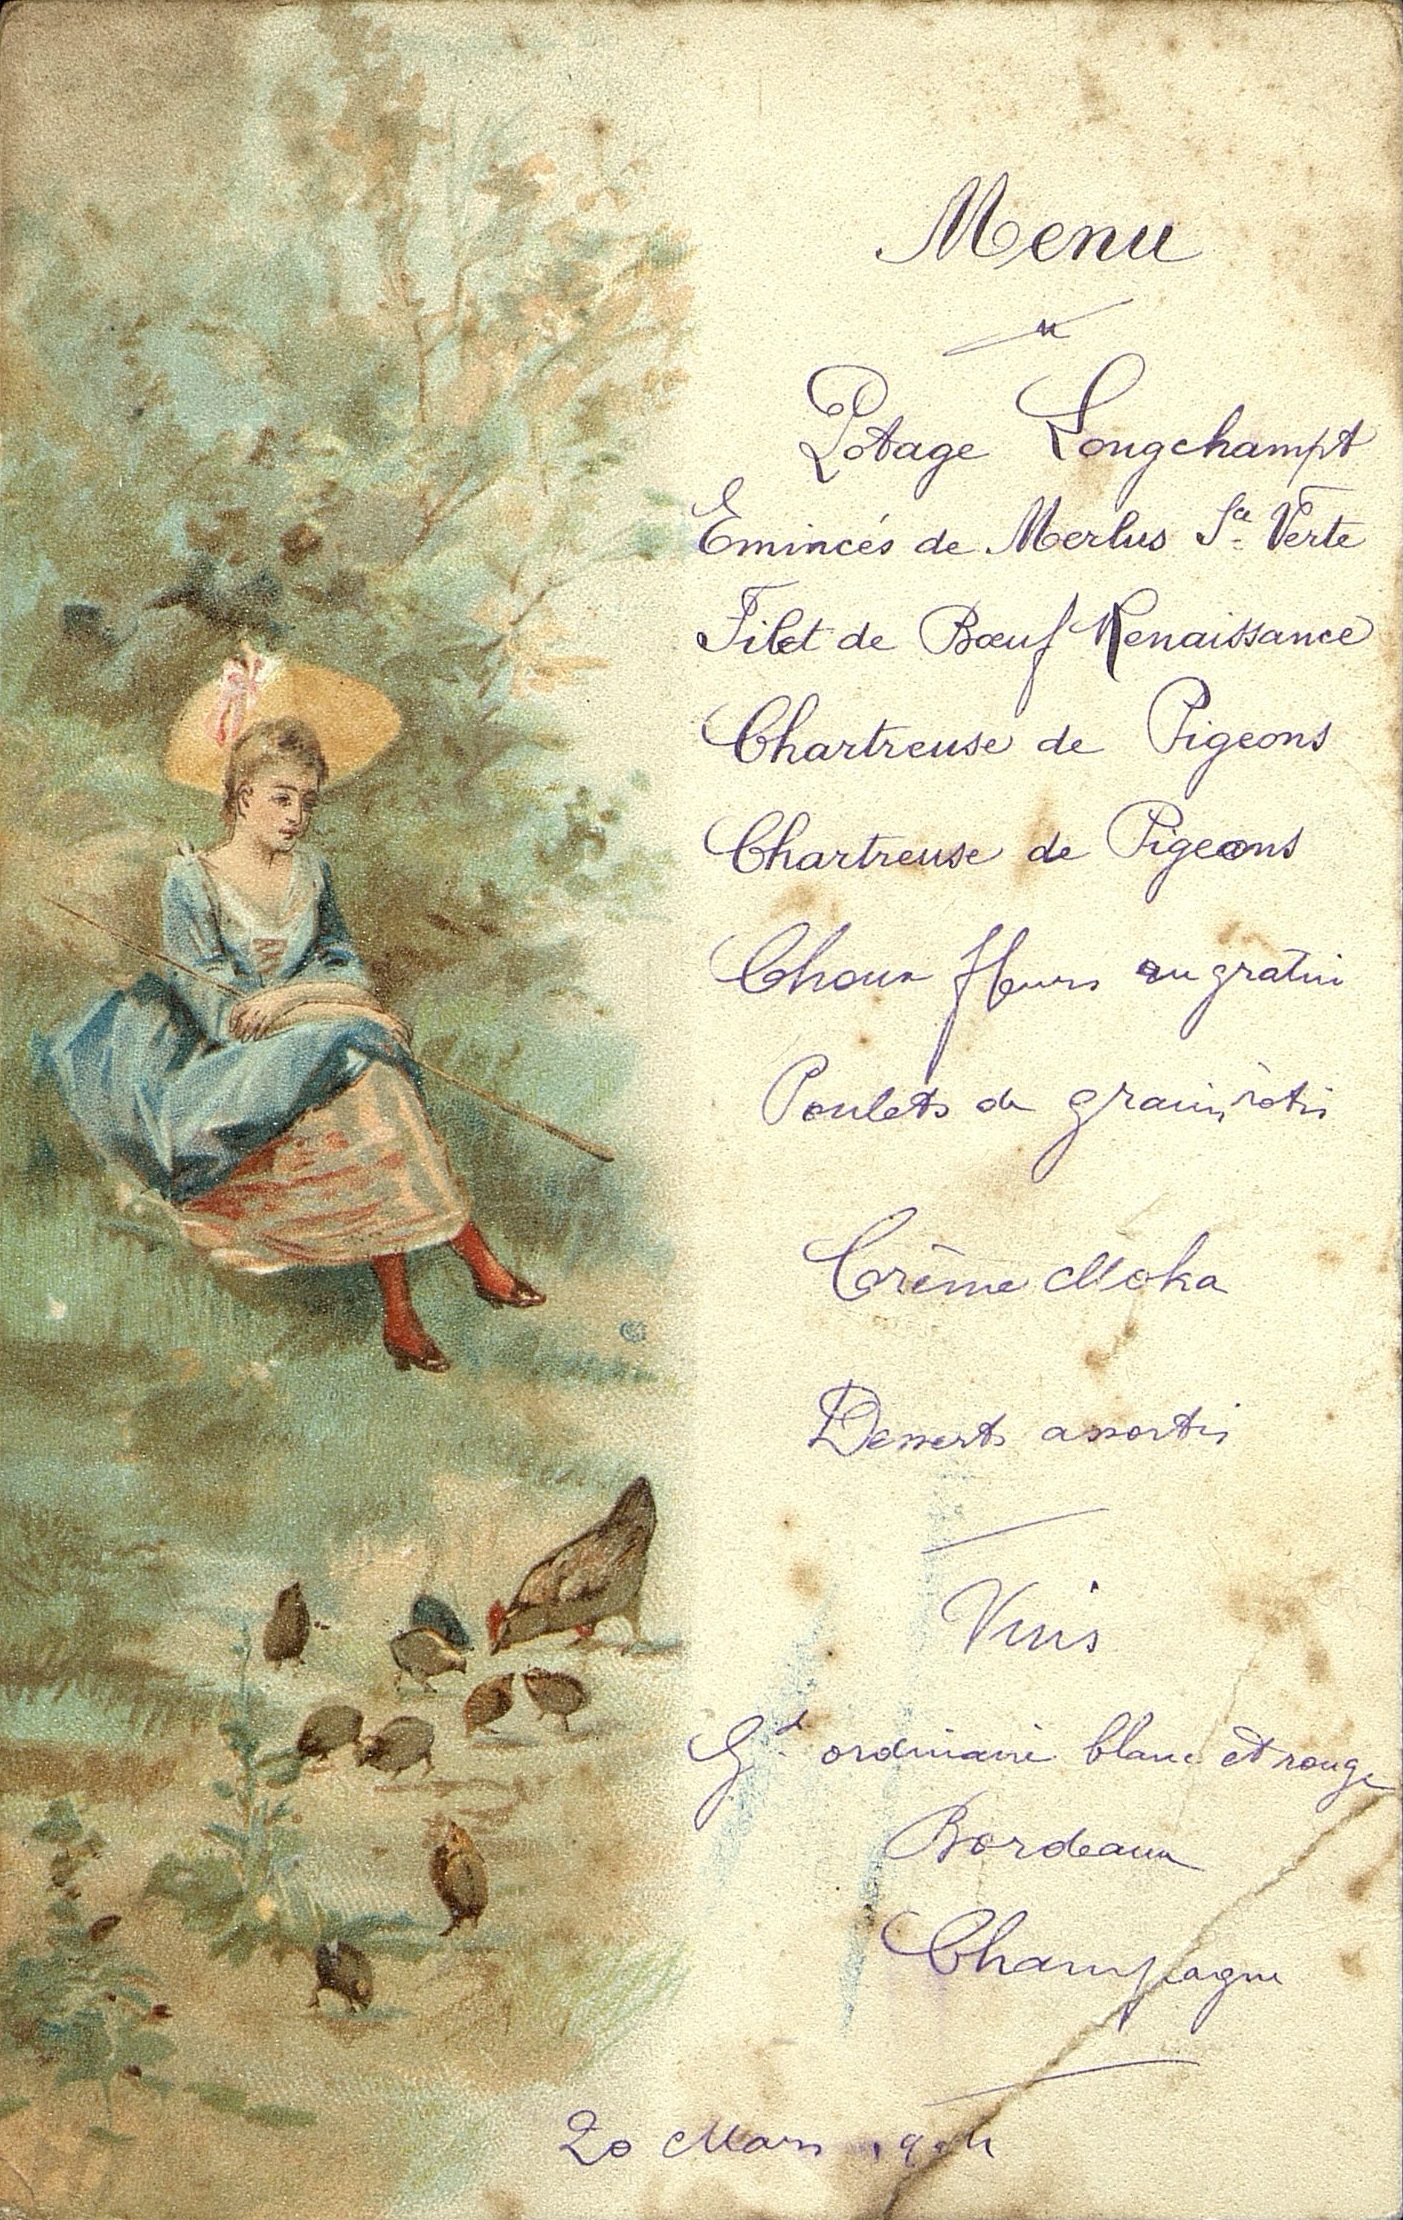 Menu
Potage Longchampt
Emincés de Merlus Sce Verte
Filet de Bœuf Renaissance
Chartreuse de Pigeons
Chartreuse de Pigeons
Choux fleurs au gratin
Poulets de grains rotis
Crème Moka
Desserts assortis
Vins
Gd ordinaire blanc et rouge
Bordeaux
Champagne
20 Mars